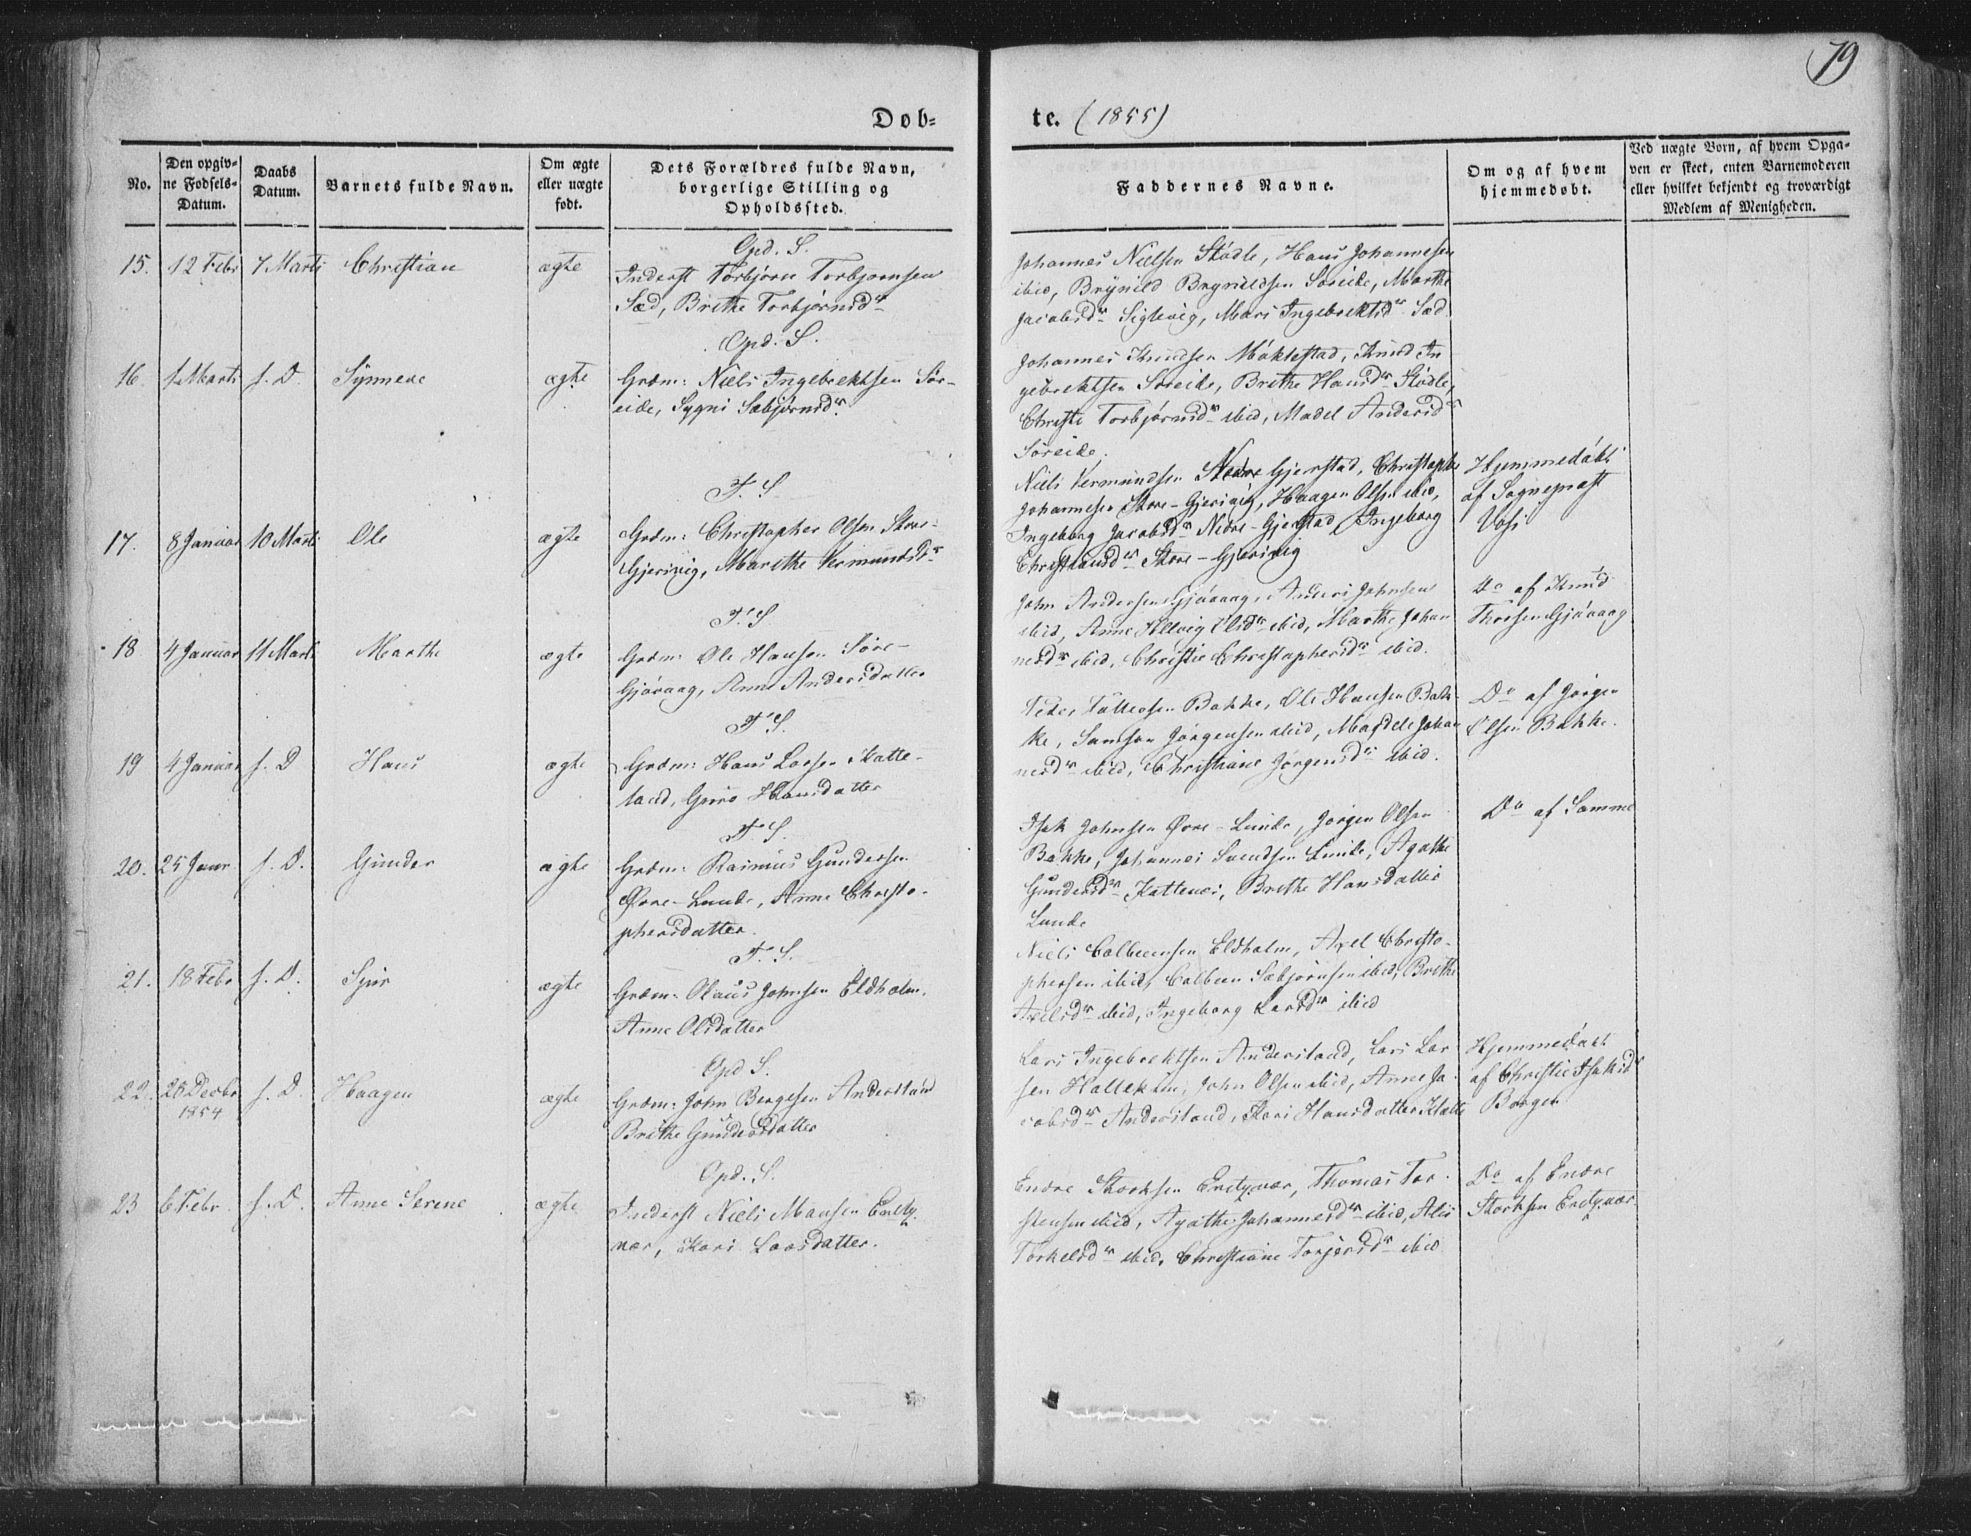 79
Døb-
te. (1855)
No.
Den opgiv-
ne Fødsels-
Datum.
Daabs
Datum.
Barnets fulde Navn.
Om ægte
eller uægte
født.
Dets Forældres fulde Navn,
borgerlige Stilling og
Opholdssted.
Faddernes Navne.
Om og af hvem
hjemmedøbt.
Ved uægte Børn, af hvem Opga-
ven er skeet, enten Barnemoderen
eller hvilket bekjendt og troværdigt
Medlem af Menigheden.
15. 12 Febr 7 Marts Christian ægte
Opd. S.
Inderst Torbjørn Torbjørnsen
Sæd, Brithe Torbjørnsdr
Johannes Nielsen Stødle, Hans Johannesen
ibid, Brynild Brynildsen Søreide, Marthe
Jacobsdr Siglevig, Mari Ingebrektsdr Sæd.
16. 1 Marts s. D. Synneve ægte
Opd. S.
Grdm: Niels Ingebrektsen Sør-
eide, Sygni Sæbjørnsdr.
Johannes Knudsen Møklestad, Knud In
gebrektsen Søreide, Brithe Hansdr Stødle,
Christi Torbjørnsdr ibid, Madel Andersdr
Søreide.
17. 8 Januar 10 Marts Ole ægte
T. S
Grdm: Christopher Olsen Store-
Gjerivig, Marithe Vermundsdr
Niels Vermundsen Nedre Gjerstad, Christopher
Johannesen Store-Gjerivig, Haagen Olsen ibid,
Ingeborg Jacobsdr Nedre-Gjerstad, Ingeborg
Christiansdr Store-Gjerivig
Hjemmedøbt
af Sogneprest
Vosi
18 4 Januar 11 Marts Marthe ægte
T. S
Grdm: Ole Hansen Søre-
Gjøvaag, Anne Andersdatter
John Andersen Gjøvaag, Anders Johnsen
ibid, Anne Helvig Olsdr ibid, Marthe Johan
nesdr ibid, Christie Christophersdr ibid.
Do af Knud
Thorsen Gjøvaag
19 4 Januar s. D Hans ægte
T. S.
Grdm: Hans Larsen Katte-
land, Guro Hansdatter
Peder Bakke, Ole Hansen Bak-
ke, Samson Jørgensen ibid, Magdele Johan
nesdr ibid, Christiane Jørgensdr ibid.
Do af Jørgen
Olsen Bakke.
20. 25 Janr s. D. Gunder ægte
T. S.
Grdm: Rasmus Gundersen
Øvre-Lunde, Anne Christo-
phersdatter.
Isak Johnsen Øvre-Lunde, Jørgen Olsen
Bakke, Johannes Svendsen Lunde, Agathe
Gundersdr Kattenes, Brithe Hansdatter
Lunde
Do af Samme
21. 18 Febr s. D. Syver ægte
T. S.
Grdm: Olaus Johnsen Eldholm.
Anne Olsdatter
Niels Colbeensen Eldholm, Axel Christo-
phersen ibid, Colbeen Sæbjørnsen ibid, Brithe
Axelsdr ibid, Ingeborg Larsdr ibid
22. 28 Decbr
1854 s. D. Haagen ægte
Opd S.
Grdm: John Børgesen Andersland
Brithe Gundersdatter
Lars Ingebrektsen Andersland, Lars Lar
sen Hallekim, John Olsen ibid, Anne Ja-
cobsdr Andersland, Kari Hansdatter
Hjemmedøbt
af Christie Isaksdr
Borgen
23 6 Febr. s. D. Anne Serene ægte
Opd. S.
Inderst Niels Monsen Erdty.
vær, Kari Larsdatter.
Endre Storksen Erdtyvær, Thomas Tor-
stensen ibid, Agathe Johannesdr ibid, Alis
Torkelsdr ibid, Christiane Torgersdr ibid
Do af Endre
Storksen Erdtyvær